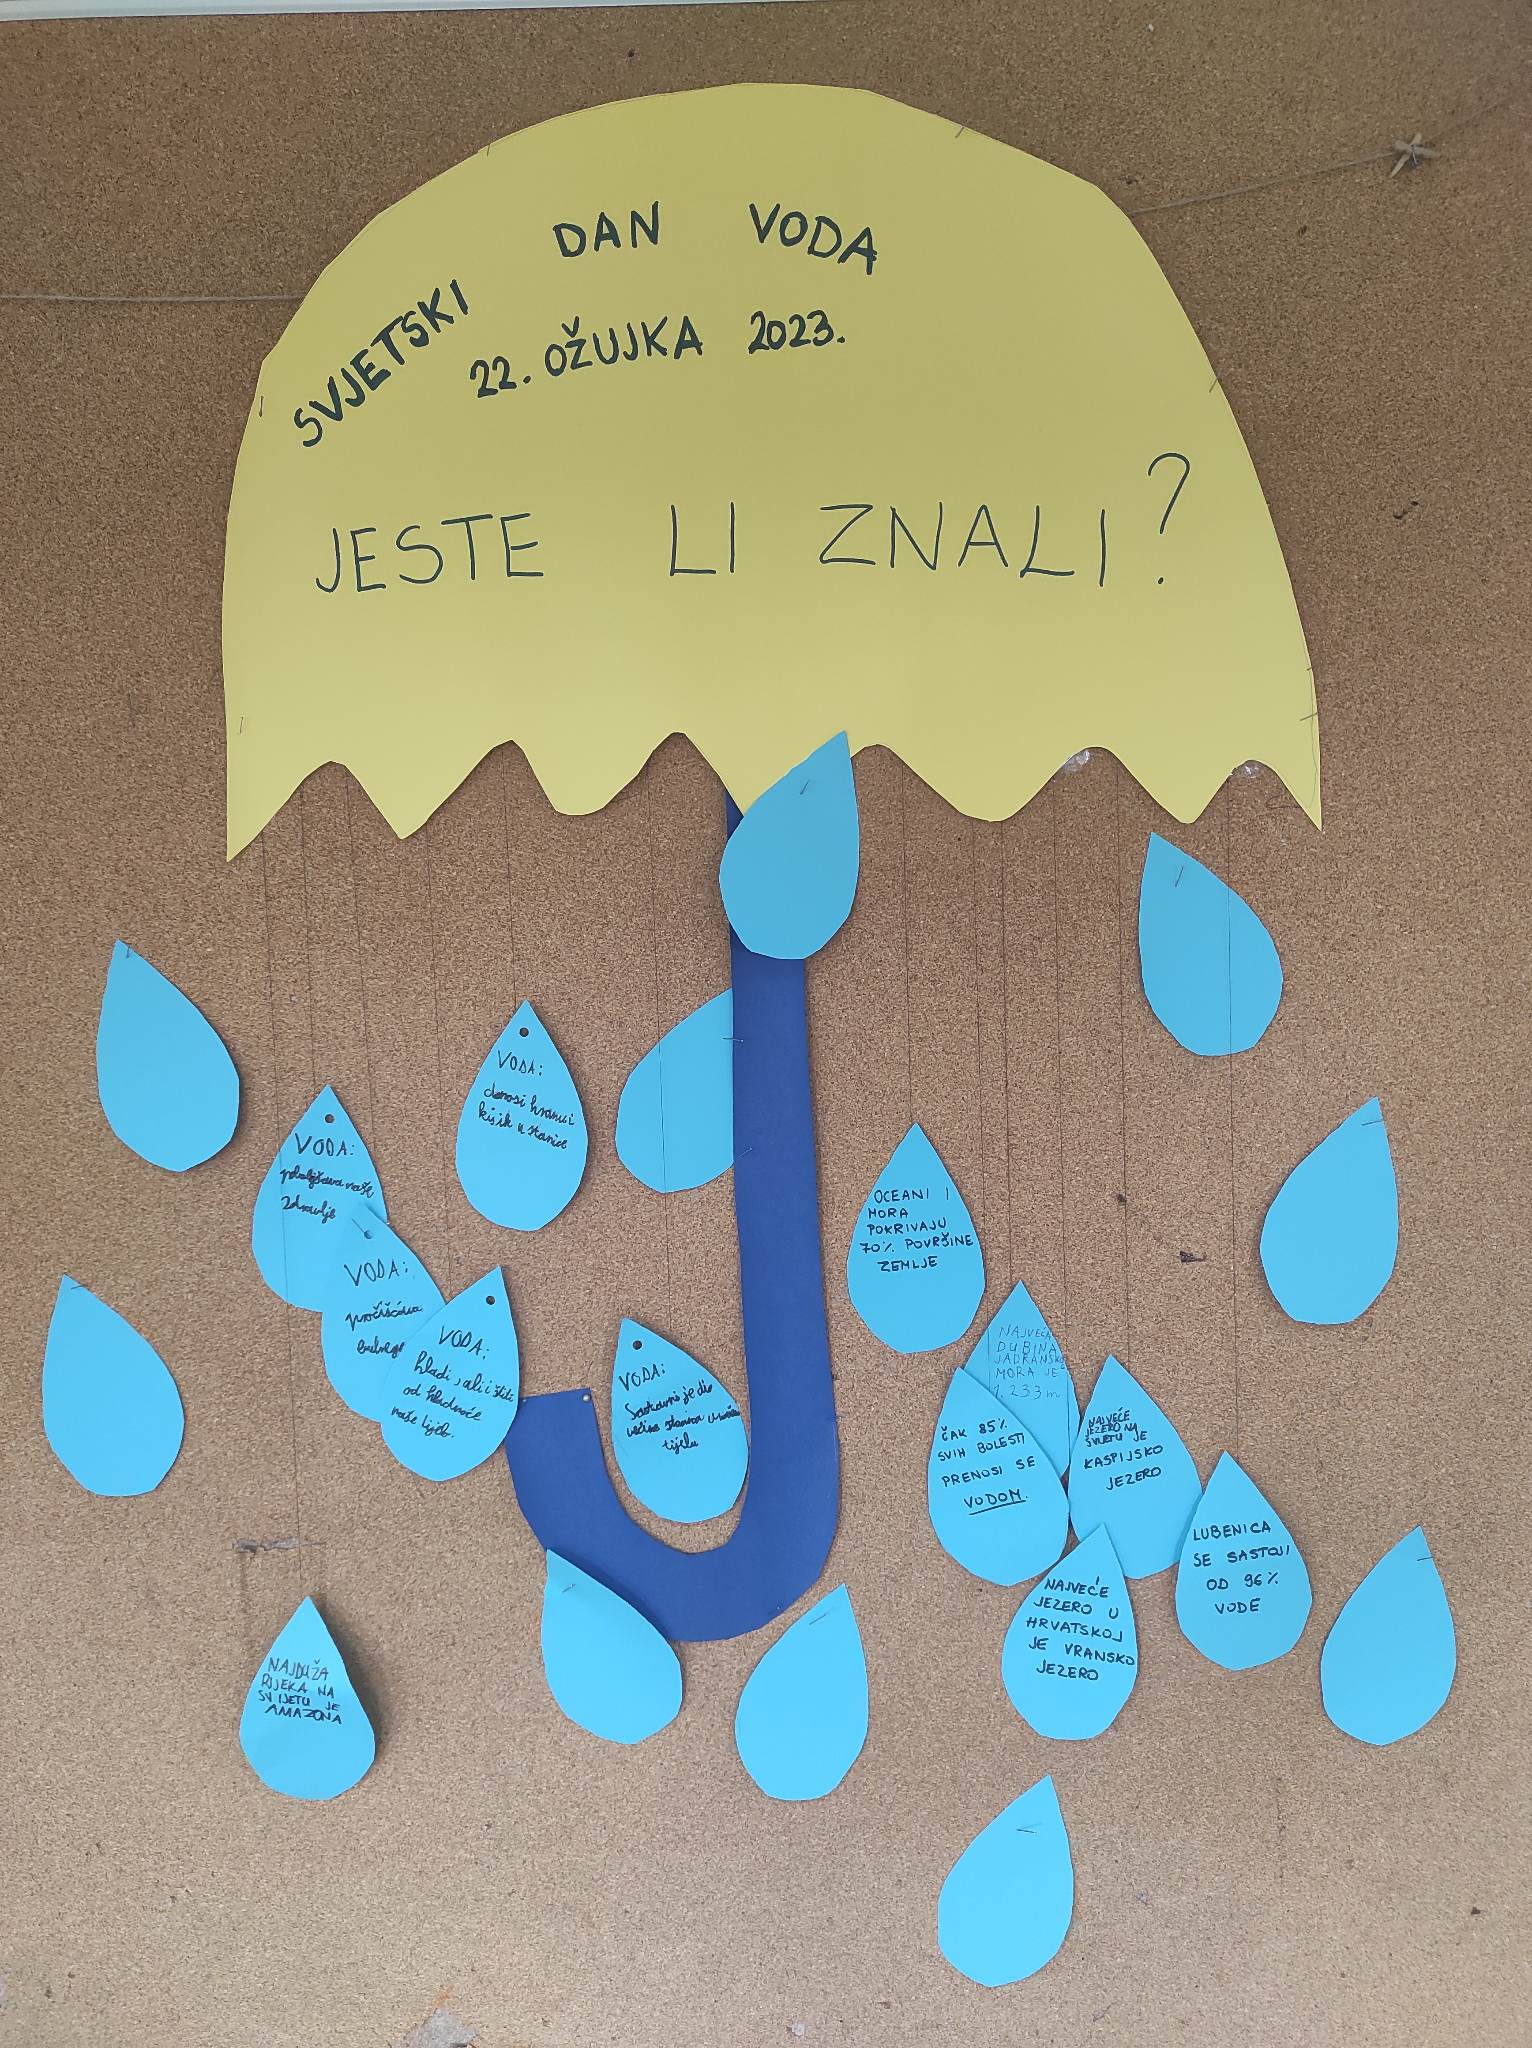 SVJETSKI DAN VODA
22. OŽUJKA 2023.
JESTE LI ZNALI?
VODA:
donosi hranu i
kisik u stanice
VODA:
poboljšava naše
zdravlje
VODA:
pročišćava
VODA:
hladi, ali i štiti
od hladnoće
naše tijelo.
VODA:
Sastavni je dio
većine stanica u
tijelu
NAJDUŽA
RIJEKA NA
SVIJETU JE
AMAZONA
OCEANI I
MORA
POKRIVAJU
70% POVRŠINE
ZEMLJE
NAJVEĆA
DUBINA
JADRANSKOG
MORA JE
1.233m
ČAK 85%
SVIH BOLESTI
PRENOSI SE
VODOM.
NAJVEĆE
JEZERO NA
SVIJETU JE
KASPIJSKO
JEZERO
LUBENICA
SE SASTOJI
OD 96%
VODE
NAJVEĆE
JEZERO U
HRVATSKOJ
JE VRANSKO
JEZERO